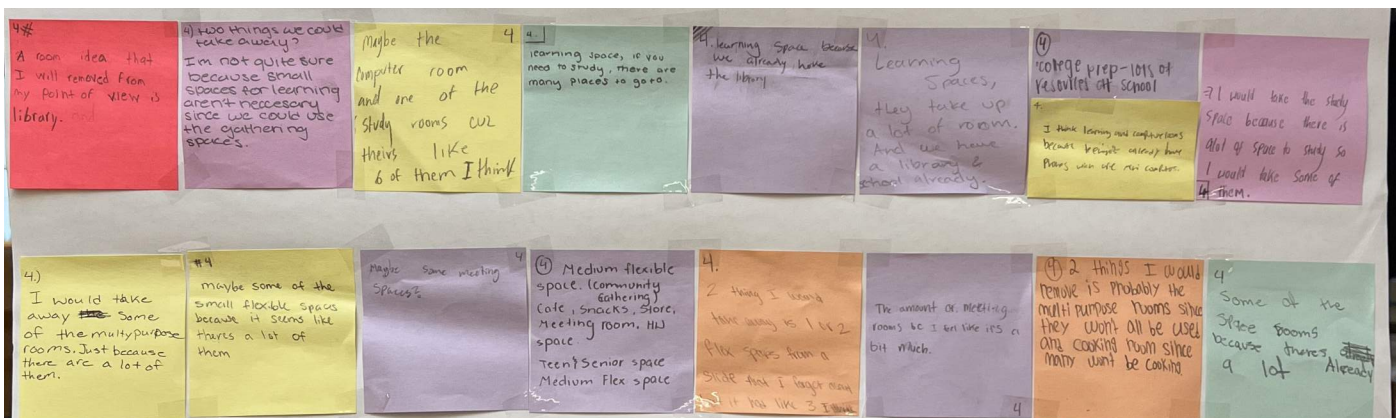 4#
A room idea that
I will removed from
my point of view is
library.
4) two things we could
take away?
I'm not quite sure
because small
spaces for learning
aren't necesary
since we could use
the gathering
space's.
4
Maybe the
computer room
and one of the
study rooms cuz
theirs like
6 of them I think
4.
learning space, if you
need to study, there are
many places to go to.
4. learning space because
we already have
the library
4.
Learning
Spaces,
they take up
a lot of room.
And we have
a library &
school already.
4
college prep-lots of
resources at school
4.
I think learning and computer rooms
because people already have
Phones
I would take the study
space because there is
alot of space to study so
I would take some of
4 them.
4.)
I would take
away some
of the multypurpose
rooms. Just because
there are a lot of
them.
#4
maybe some of the
small flexible spaces
because it seems like
thers a lot of
them
4
Maybe some meeting
spaces?
4 Medium flexible
space. (community
Gathering)
Cafe, Snacks, Store,
Meeting room, HW
space.
Teen & Senior space
Medium Flex space
4.
2 thing I would
take away is 1 or 2
flex spaces from a
slide that I forgot
it had like 3 I
The amount of meeting
rooms bc I feel like it's a
bit much.
4
4 2 things I would
remove is probably the
multi purpose rooms since
they won't all be used
and cooking room since
many wont be cooking
4
Some of the
space rooms
because theres Already
a lot